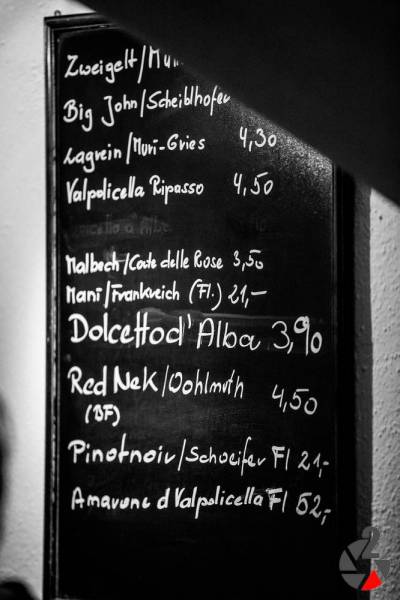 Zweigelt/Muri
Big John/Scheiblhofer
Lagrein/Muri-Gries 4,30
Valpolicella Ripasso 4,50
Malbech/Corte delle Rose 3,50
Mani/Frankreich (Fl.) 21,-
Dolcetto d'Alba 3,90
Red Nek/Wohlmuth 4,50
(BF)
Pinotnoir/Schoeifer Fl 21,-
Amarone d Valpolicella Fl 52,-
2